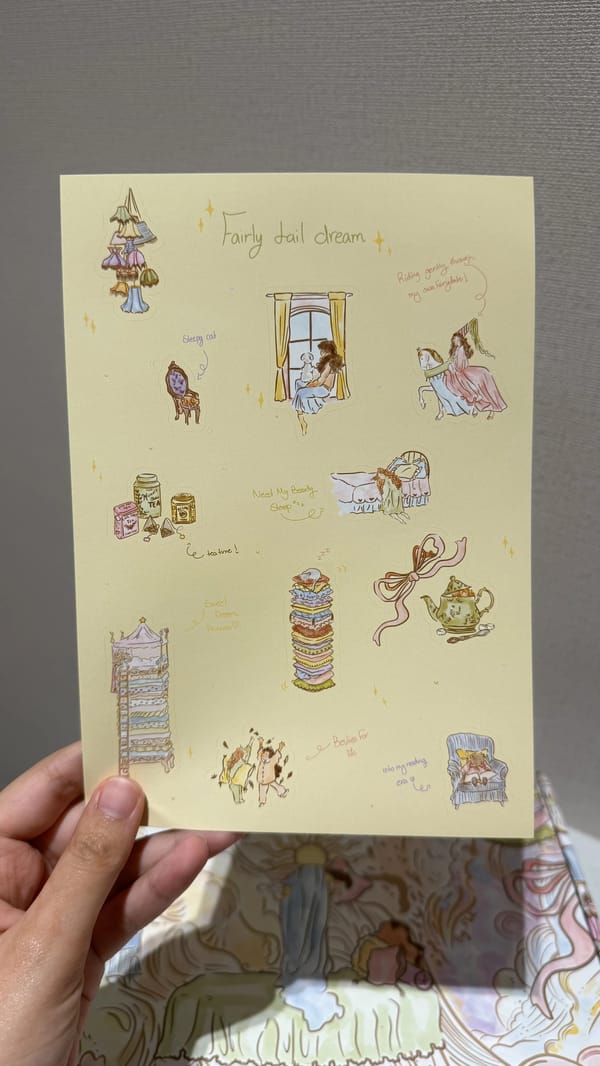 Fairly tail dream
Riding gently through
my own fairytale!
Sleepy cat
TEA
Need My Beauty
Sleep zzz
tea time!
zzz
Sweet
Dream
Besties For
life
into my reading
era